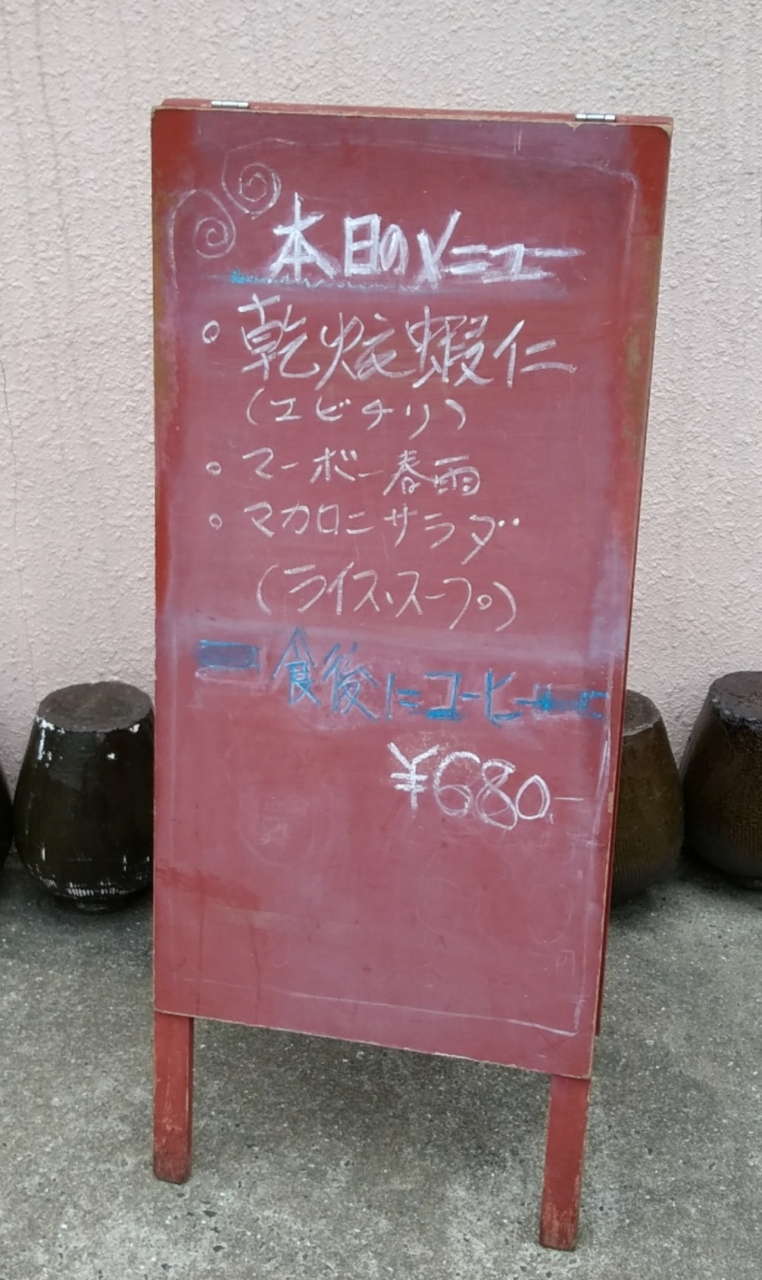 本日のメニュー
○乾焼蝦仁
(エビチリ)
○マーボー春雨
○マカロニサラダ
(ライス・スープ。)
食後にコーヒー
¥680.-